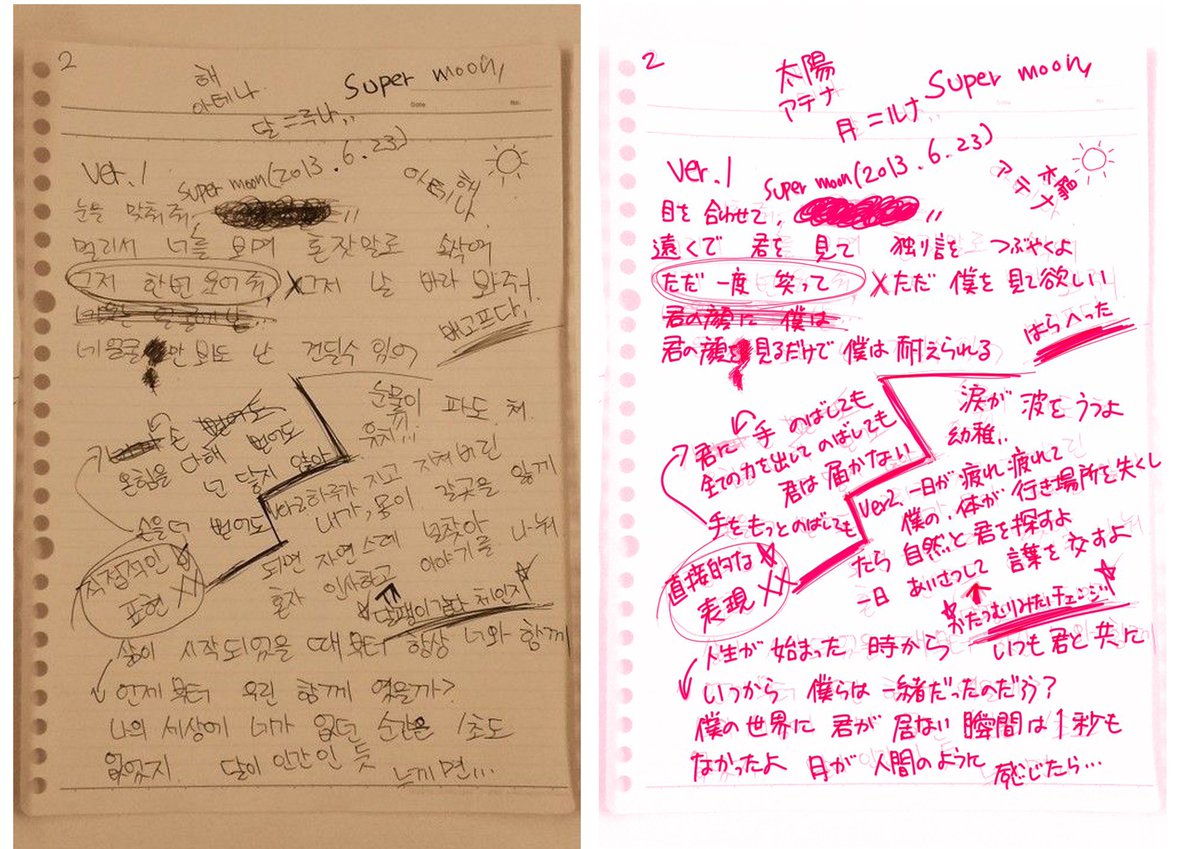 2
해
아테나
Super moon,
달=루나..
Ver.1
Super moon(2013.6.23)
아테나
해
눈을 맞춰줘,
멀리서 너를 보며 혼잣말로 속삭여
그저 한번 웃어줘, X그저 날 바라 봐줘.
네 얼굴만 봐도 난 견딜수 있어
배고프다!
손 뻗어도
온힘을 다해 뻗어도
넌 닿지 않아
손을 더 뻗어도
직접적인
표현 XX
눈물이 파도 쳐.
유치..
Ver2.하루가 지고 지쳐버린
내가, 몸이 갈곳을 잃게
되면 자연스레 너를 찾아
혼자 인사하고 이야기를 나눠
달팽이같다 체인지
삶이 시작되었을 때부터 항상 너와 함께
언제부터 우린 함께 였을까?
나의 세상에 너가 없던 순간은 1초도
없었지. 달이 인간인 듯 느끼면...
2
太陽
アテナ
Super moon,
月=ルナ..
Ver.1
Super moon(2013.6.23)
アテナ
太陽
目を合わせて,
遠くで 君を 見て 独り言を つぶやくよ
ただ 一度 笑って Xただ 僕を 見て欲しい
君の顔に 僕は
君の顔 見るだけで 僕は 耐えられる
はらへった
君に 手 のばしても
全ての力を出して のばしても
君は 届かない
手をもっと のばしても
直接的な
表現 XX
涙が 波を うつよ
幼稚..
Ver2. 一日が 疲れ 疲れて
僕の, 体が 行き場所を失くし
たら 自然と 君を 探すよ
一日 あいさつして 言葉を 交すよ
かたつむりみたい チェンジ
人生が 始まった 時から いつも 君と 共に
いつから 僕らは 一緒だったのだろう?
僕の世界に 君が 居ない 瞬間は 1秒も
なかったよ 月が 人間のように 感じたら...